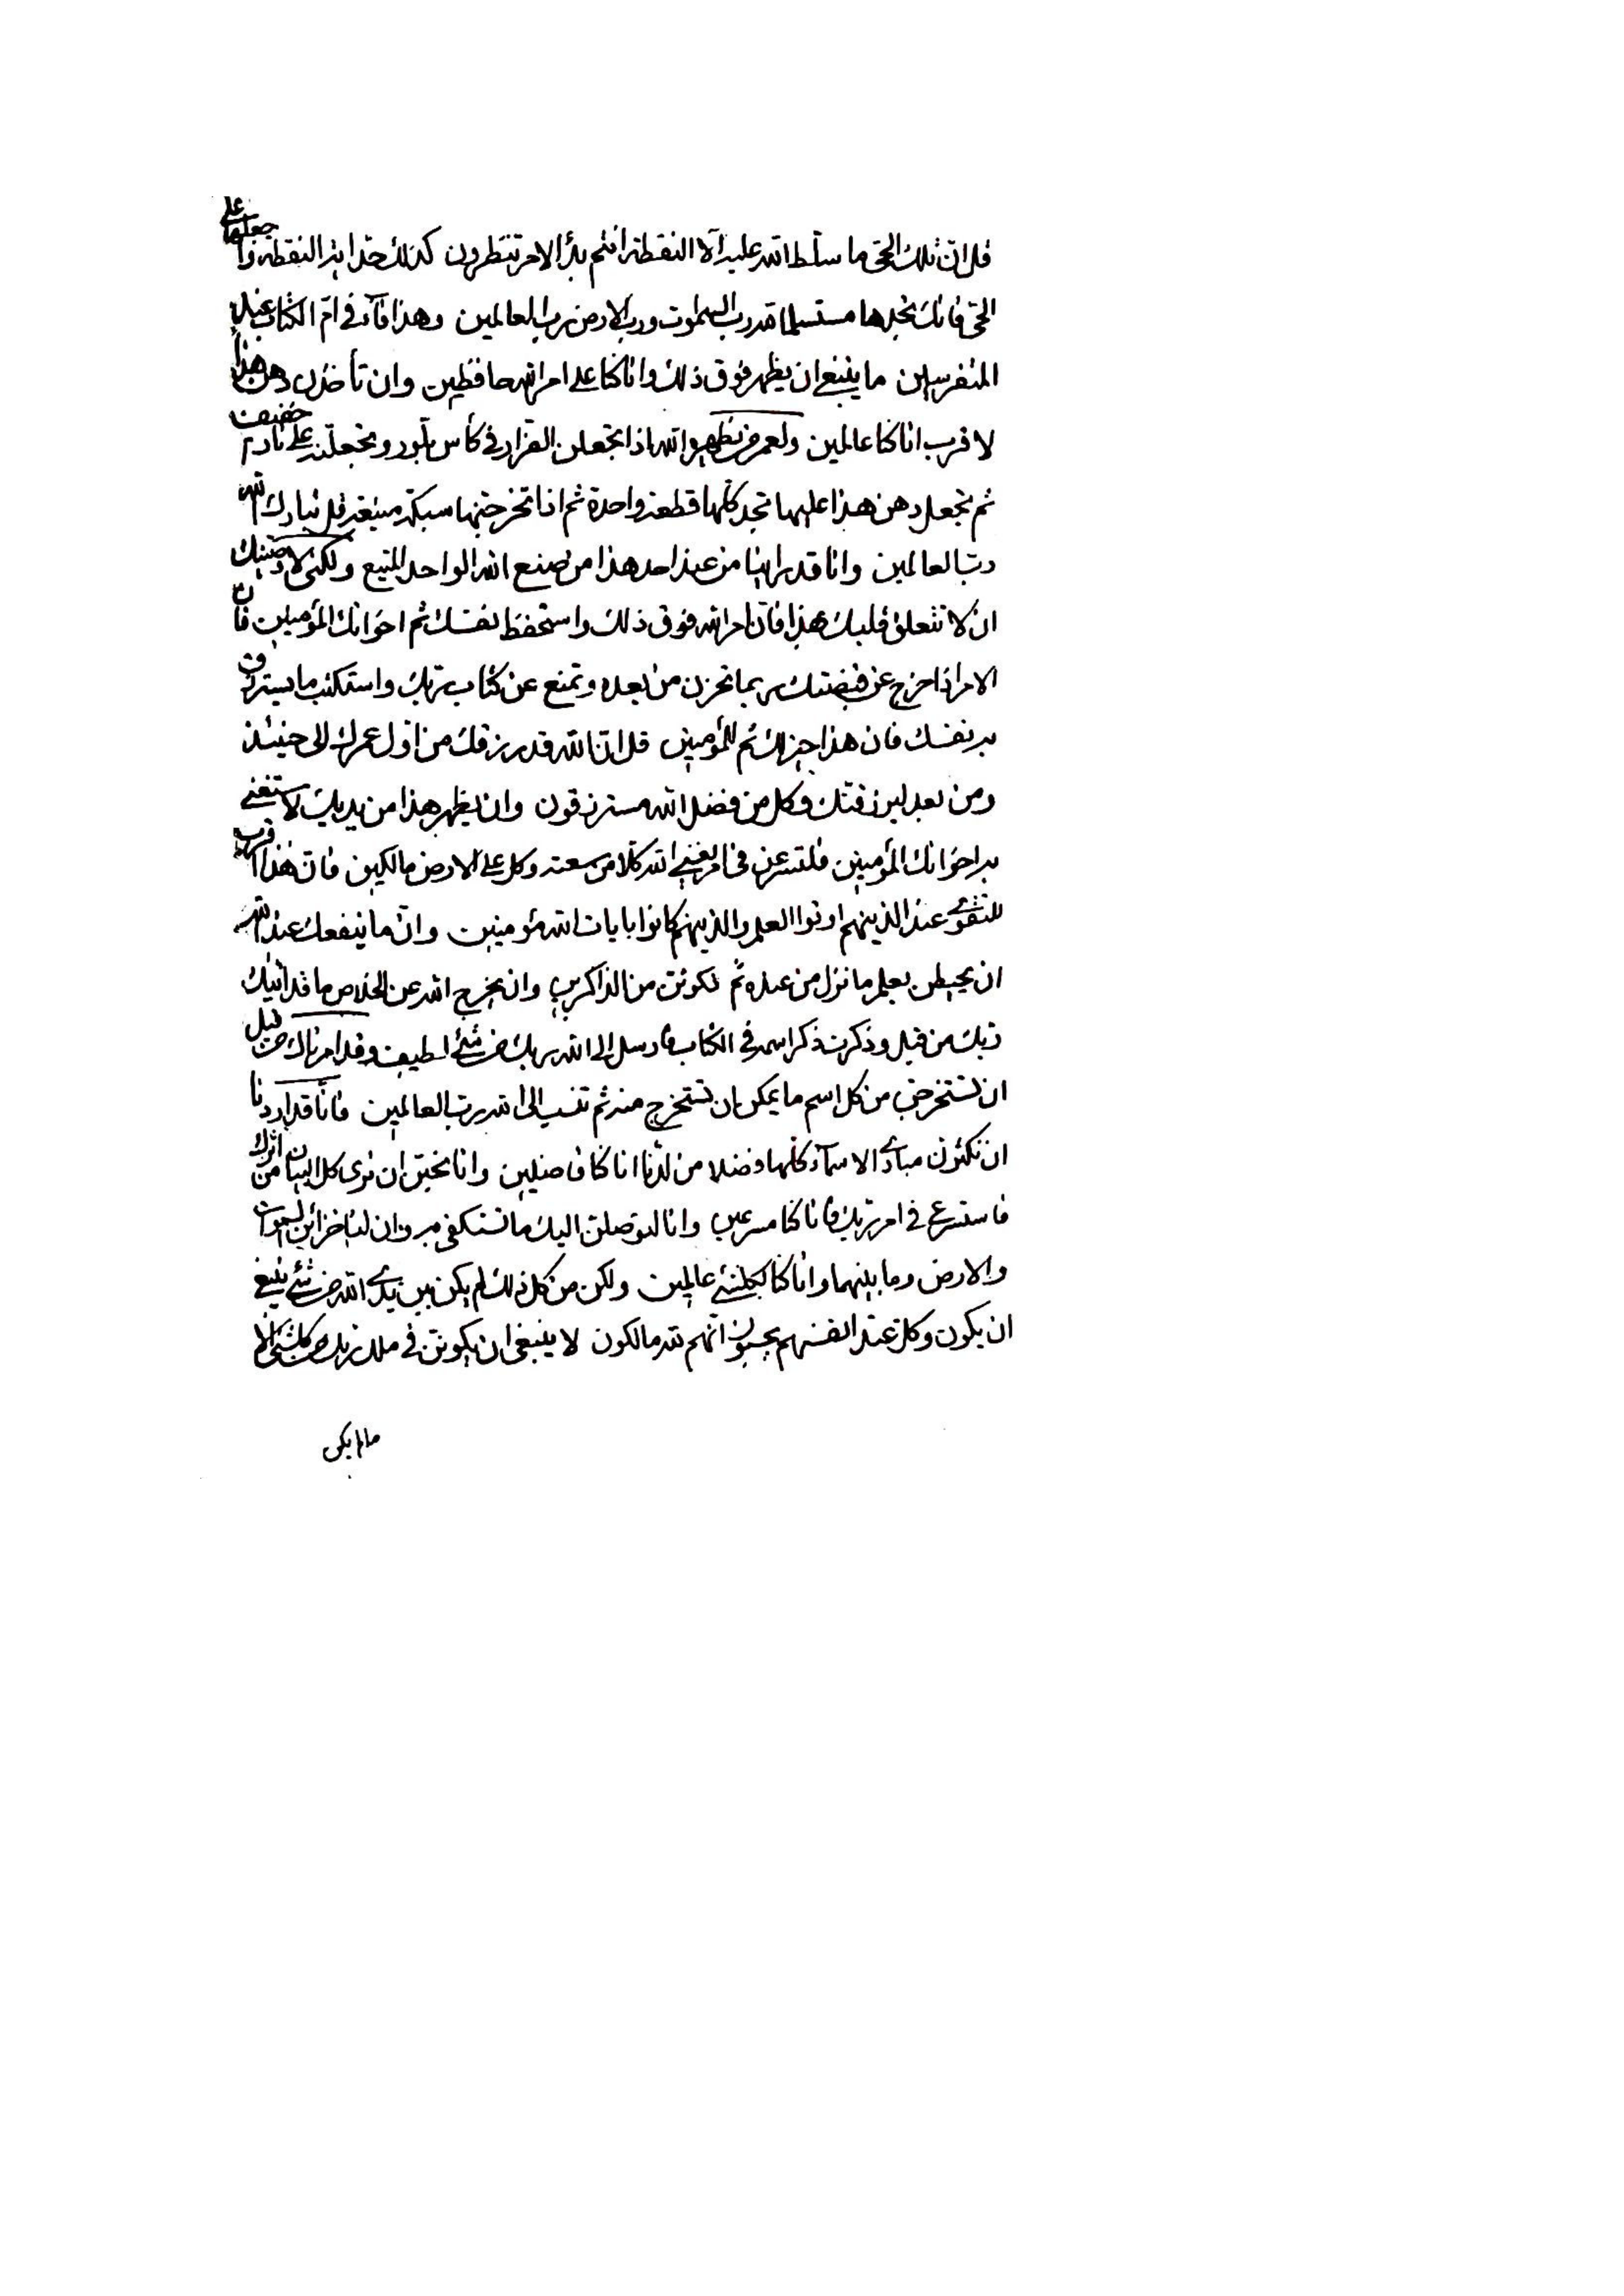 قل ان تلك الحق ما سلط الله عليه الا النقطة انتم بدأ الامر تنظرون كذلك خذ النقطة جعلها على
الحق فانك تجدها مستسلما لله رب السموات ورب الارض رب العالمين وهذا في ام الكتاب عند
المتفرسين ما ينبغ ان يظهر فوق ذلك وانا كنا على امر الله حافظين وان تأخذن دهن هذا
لاقرب انا كنا عالمين ولعمر من يظهره الله اذا تجعلن الفرار في كأس بلور وتجعلنه على نار خفيف
ثم تجعل دهن هذا عليها تجد كلها قطعة واحدة ثم اذا تخرجنها سبكة منيعة قل تبارك الله
رب العالمين وانا قد راينا من عند احد هذا من صنع الله الواحد المنيع ولكني لاوصينك
ان لا تتعلق قلبك بهذا فان امر الله فوق ذلك واستحفظ نفسك ثم اخوانك المؤمنين فان
الامر اذا خرج عن قبضتك ربما تحزن من بعده وتمنع عن كتاب ربك واستكتب ما يسترزقون
به نفسك فان هذا خير لك ثم للمؤمنين قل ان الله قد رزقك من اول عمرك الى حينئذ
ومن بعد ليرزقنك وكل من فضل الله مسترزقون وان يظهر هذا من يديك لاستغنى
به اخوانك المؤمنين فلتسرعن في امر يغني الله كلا من سعته وكل على الارض مالكين فان هذا اقرب
للتقوى عند الذينهم اوتوا العلم والذينهم كانوا بايات الله مؤمنين وان ما ينفعك عند الله
ان يحيطن بعلم ما نزل من عنده ثم تكونن من الذاكرين وان يخرج الله عن الخلاص ما قد اتيك
ربك من قبل وذكرت ذكر اسمه في الكتاب فارسل الى الله ربك من شئ لطيف وقد امرناك من قبل
ان تستخرجن من كل اسم ما يمكن ان تستخرج منه ثم تنسب الى الله رب العالمين فانا قد اردنا
ان تكثرن مبادى الاسماء كلها فضلا من لدنا انا كنا فاضلين وانا نحبن ان نرى كل البيان من اثرك
فاستسرع في امر ربك فانا كنا مسرعين وانا لنوصلن اليك ما تستكفى به وان لنا خزائن السموات
والارض وما بينهما وانا كنا بكلشئ عالمين ولكن من كل ذلك لم يكن بين يدى الله من شئ ينبغ
ان يكون وكل عند انفسهم يحسبون انهم لله مالكون لا ينبغى ان يكونن في ملك ربك من كلشئ الا